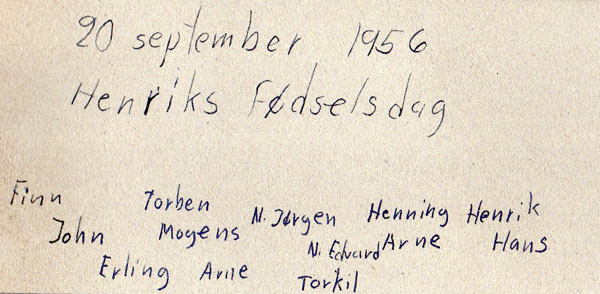 20 september 1956
Henriks Fødselsdag
Finn Torben N. Jørgen Henning Henrik
John Mogens N. Edvard Arne Hans
Erling Arne Torkil